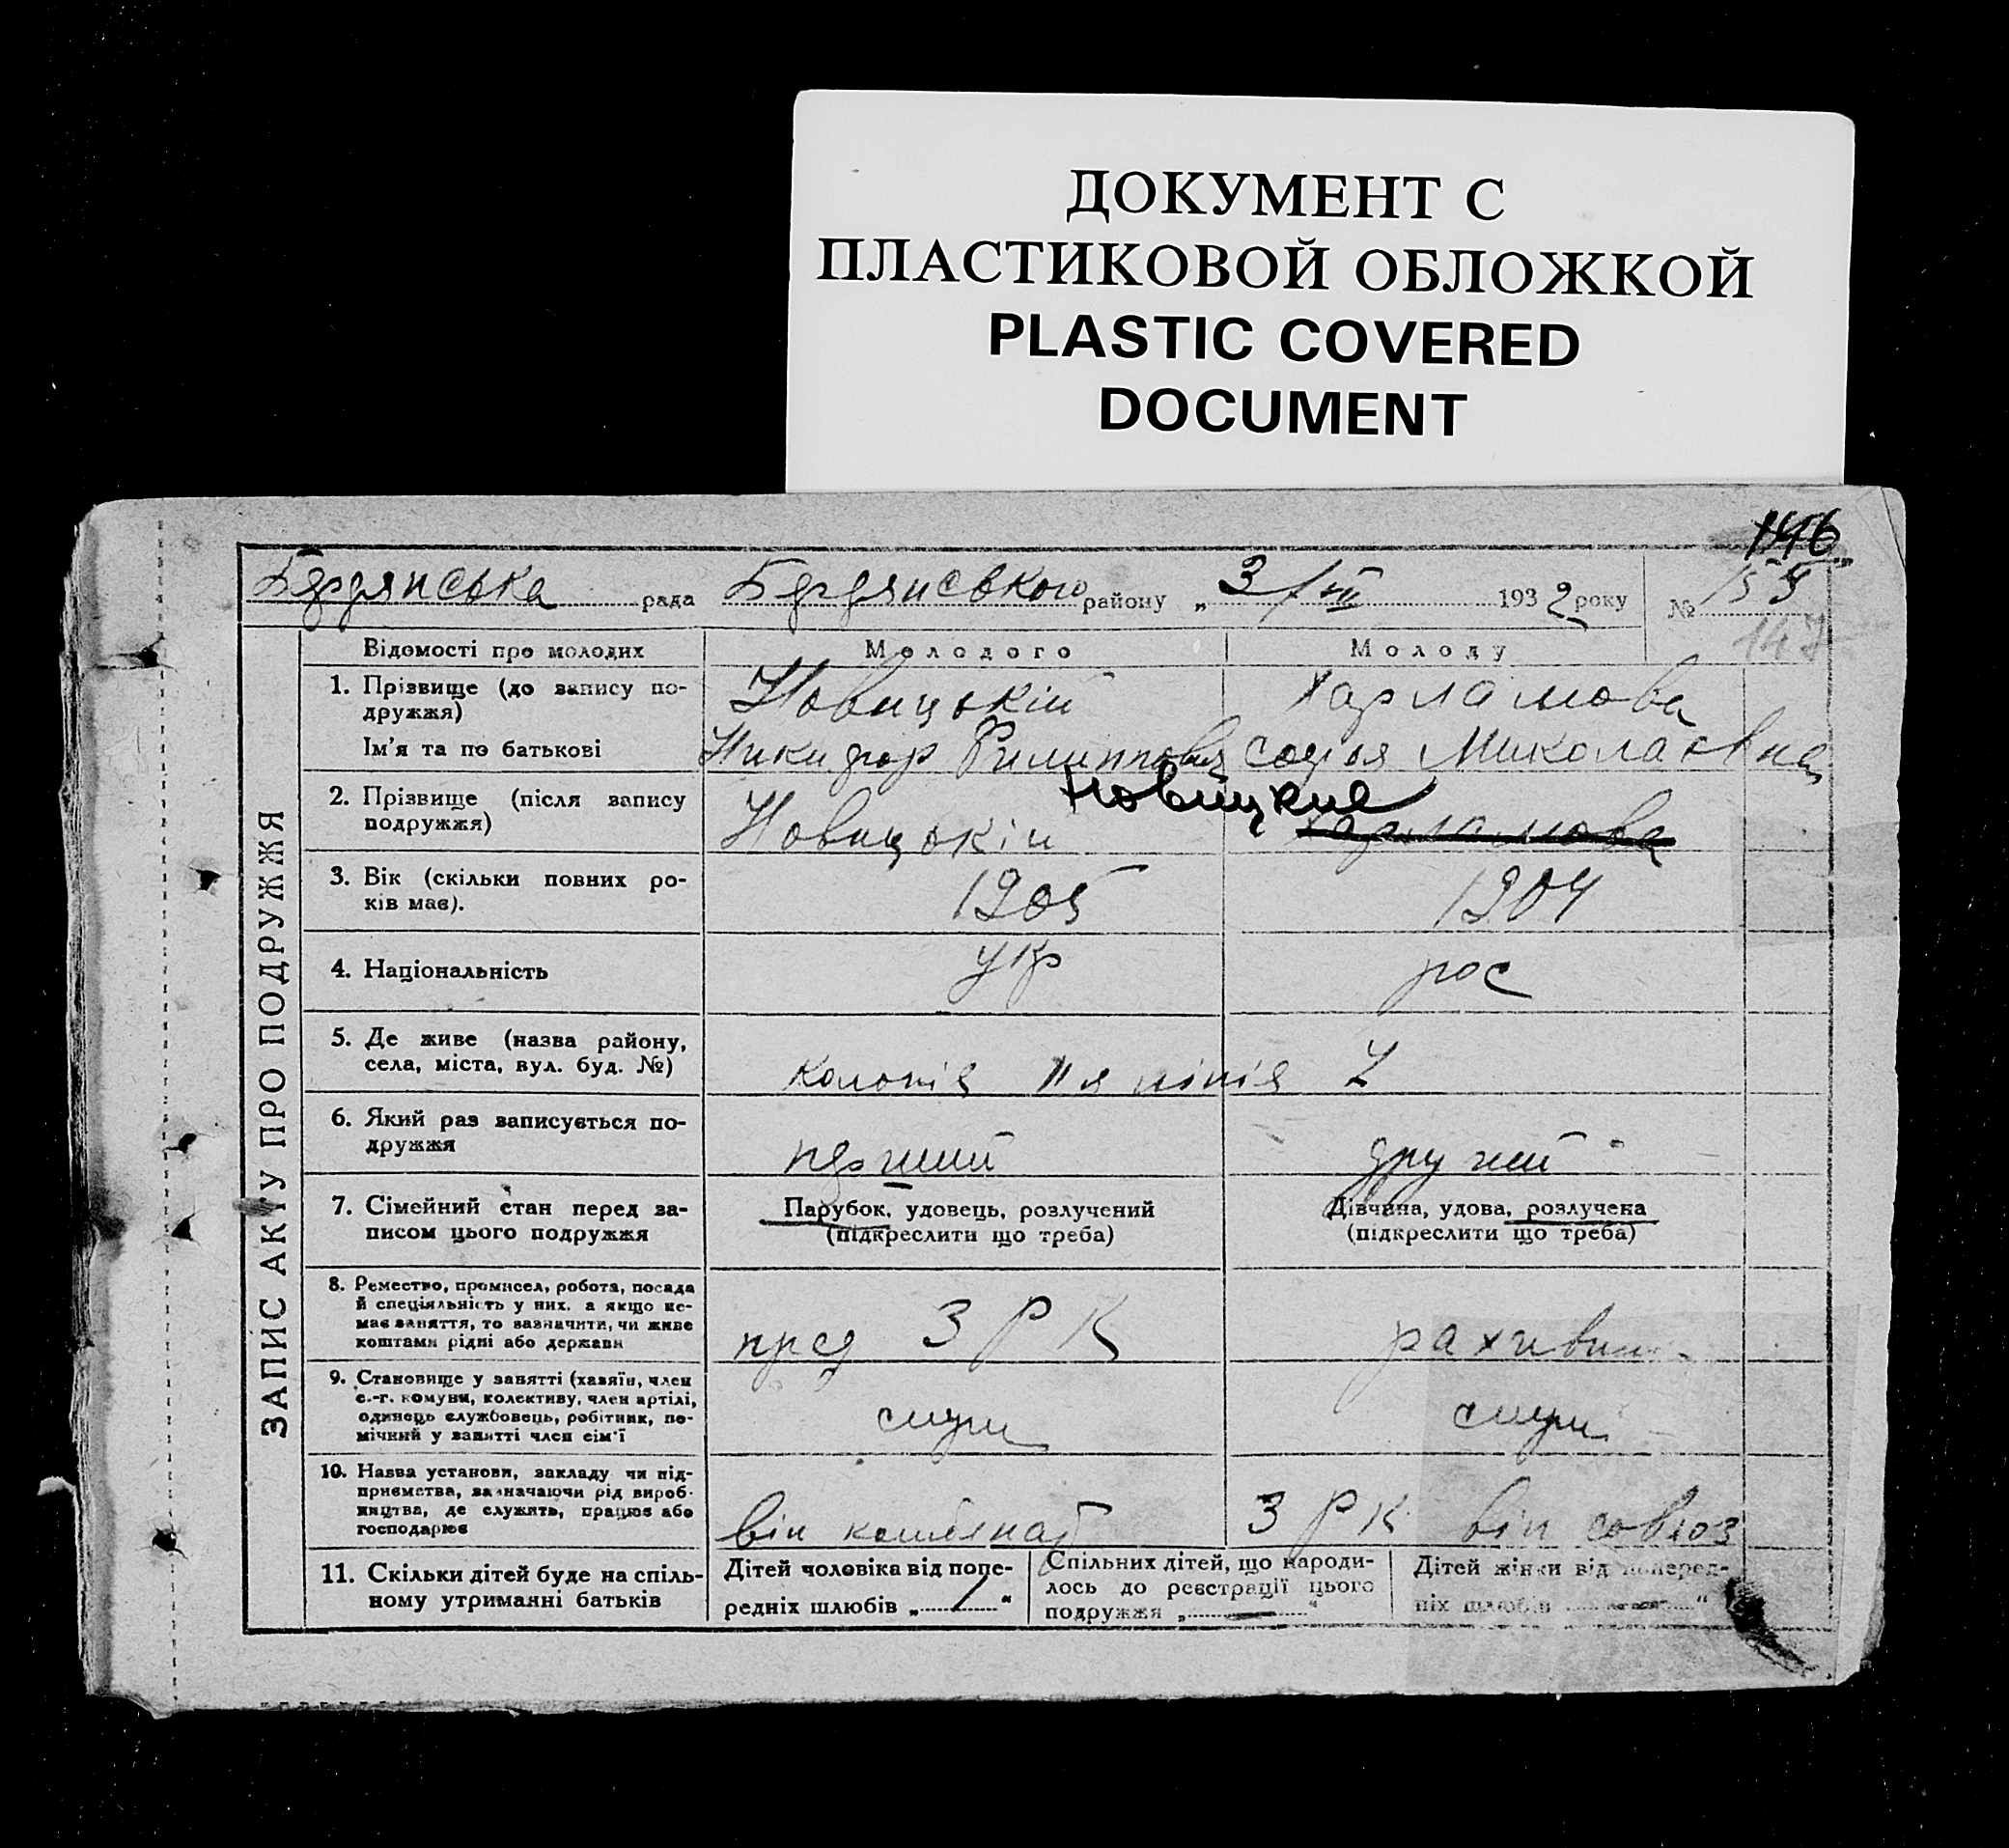 ДОКУМЕНТ С
ПЛАСТИКОВОЙ ОБЛОЖКОЙ
PLASTIC COVERED
DOCUMENT
146
Бердянська рада Бердянського району „ 3/VIII 1932 року № 155
147
ЗАПИС АКТУ ПРО ПОДРУЖЖЯ
Відомості про молодих Молодого Молоду
1. Прізвище (до запису по- Новицькій Харламова
дружжя)
Ім'я та по батькові Никифор Филиппович Софія Миколаєвна
2. Прізвище (після запису Новицкие
подружжя) Новицькій Харламова
3. Вік (скільки повних ро- 1905 1904
ків має).
4. Національність укр рос
5. Де живе (назва району,
села, міста, вул. буд. №) колонія 11я лінія
6. Який раз записується по-
дружжя перший другий
7. Сімейний стан перед за- Парубок, удовець, розлучений Дівчина, удова, розлучена
писом цього подружжя (підкреслити що треба) (підкреслити що треба)
8. Ремество, промисел, робота, посада
й спеціяльність у них, а якщо не-
має заняття, то зазначити, чи живе
коштами рідні або держави пред ЗРК рахівни
9. Становище у занятті (хазяїн, член
с.-г. комуни, колективу, член артілі,
одинець службовець, робітник, по-
мічний у занятті член сім'ї служ служ
10. Назва установи, закладу чи під-
приємства, зазначаючи рід вироб-
ництва, де служить, працює або
господарює він комбінат ЗРК він союз
11. Скільки дітей буде на спіль-
ному утриманні батьків
Дітей чоловіка від попе-
редніх шлюбів „ — “
Спільних дітей, що народи-
лось до реєстрації цього
подружжя „ — “
Дітей жінки від поперед-
ніх шлюбів — “